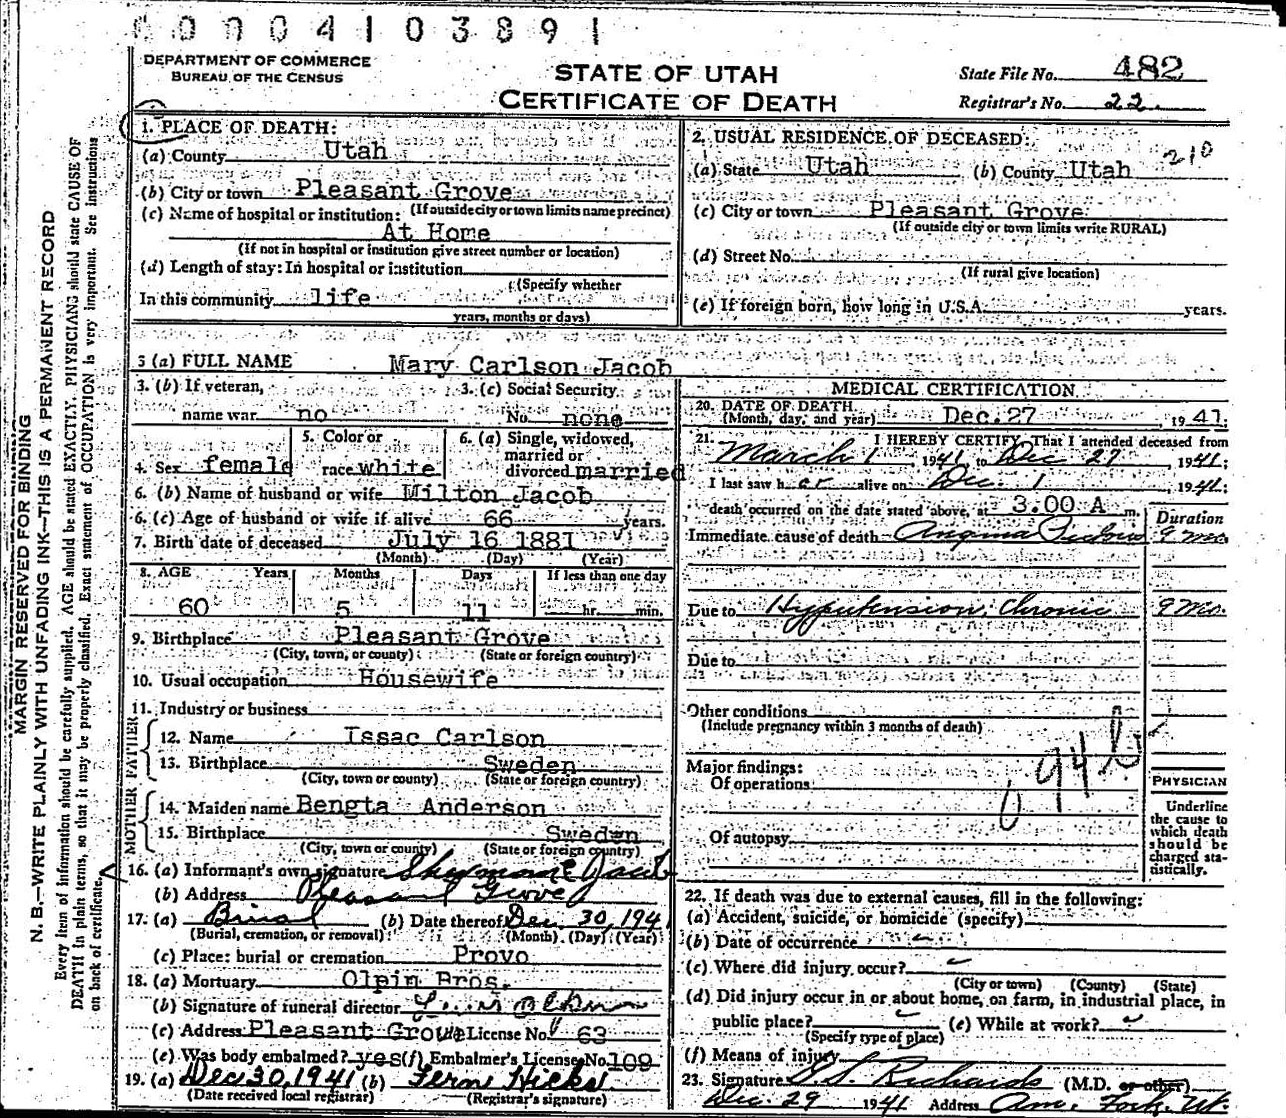 0004103891
DEPARTMENT OF COMMERCE
BUREAU OF THE CENSUS
STATE OF UTAH
CERTIFICATE OF DEATH
State File No. 482
Registrar's No. 22.
MARGIN RESERVED FOR BINDING
N. B.—WRITE PLAINLY WITH UNFADING INK—THIS IS A PERMANENT RECORD
Every item of information should be carefully supplied. AGE should be stated EXACTLY. PHYSICIANS should state CAUSE OF
DEATH in plain terms, so that it may be properly classified. Exact statement of OCCUPATION is very important. See instructions
on back of certificate.
1. PLACE OF DEATH:
(a) County Utah
(b) City or town Pleasant Grove
(If outside city or town limits name precinct)
(c) Name of hospital or institution:
At Home
(If not in hospital or institution give street number or location)
(d) Length of stay: In hospital or institution
(Specify whether
In this community life
years, months or days)
2. USUAL RESIDENCE OF DECEASED: 210
(a) State Utah (b) County Utah
(c) City or town Pleasant Grove
(If outside city or town limits write RURAL)
(d) Street No.
(If rural give location)
(e) If foreign born, how long in U.S.A. years.
3 (a) FULL NAME Mary Carlson Jacob
3. (b) If veteran, name war no
3. (c) Social Security No. none
4. Sex female
5. Color or race white
6. (a) Single, widowed, married or divorced married
6. (b) Name of husband or wife Milton Jacob
6. (c) Age of husband or wife if alive 66 years.
7. Birth date of deceased July 16 1881
(Month) (Day) (Year)
8. AGE Years Months Days If less than one day
60 5 11 hr. min.
9. Birthplace Pleasant Grove
(City, town, or county) (State or foreign country)
10. Usual occupation Housewife
11. Industry or business
FATHER
12. Name Issac Carlson
13. Birthplace Sweden
(City, town or county) (State or foreign country)
MOTHER
14. Maiden name Bengta Anderson
15. Birthplace Sweden
(City, town or county) (State or foreign country)
16. (a) Informant's own signature Jacob
(b) Address Pleasant Grove
17. (a) Burial (b) Date thereof Dec 30, 1941
(Burial, cremation, or removal) (Month) (Day) (Year)
(c) Place: burial or cremation Provo
18. (a) Mortuary Olpin Bros.
(b) Signature of funeral director
(c) Address Pleasant Grove License No. 63
(e) Was body embalmed? yes (f) Embalmer's License No. 109
19. (a) Dec 30, 1941 (b) Fern Hicks
(Date received local registrar) (Registrar's signature)
MEDICAL CERTIFICATION
20. DATE OF DEATH
(Month, day, and year) Dec. 27 1941
21. I HEREBY CERTIFY, That I attended deceased from
March 1, 1941 to Dec 27, 1941;
I last saw her alive on Dec. 1 1941;
death occurred on the date stated above, at 3.00 A m.
Duration
Immediate cause of death Angina Pectoris 9 mo.
Due to Hypertension, Chronic 9 mo.
Due to
Other conditions
(Include pregnancy within 3 months of death)
094b
Major findings:
Of operations
Of autopsy
PHYSICIAN
Underline
the cause to
which death
should be
charged sta-
tistically.
22. If death was due to external causes, fill in the following:
(a) Accident, suicide, or homicide (specify)
(b) Date of occurrence
(c) Where did injury occur?
(City or town) (County) (State)
(d) Did injury occur in or about home, on farm, in industrial place, in
public place? (e) While at work?
(Specify type of place)
(f) Means of injury
23. Signature Richards (M.D. or other)
Dec. 29 1941 Address Am. Fork, Ut.